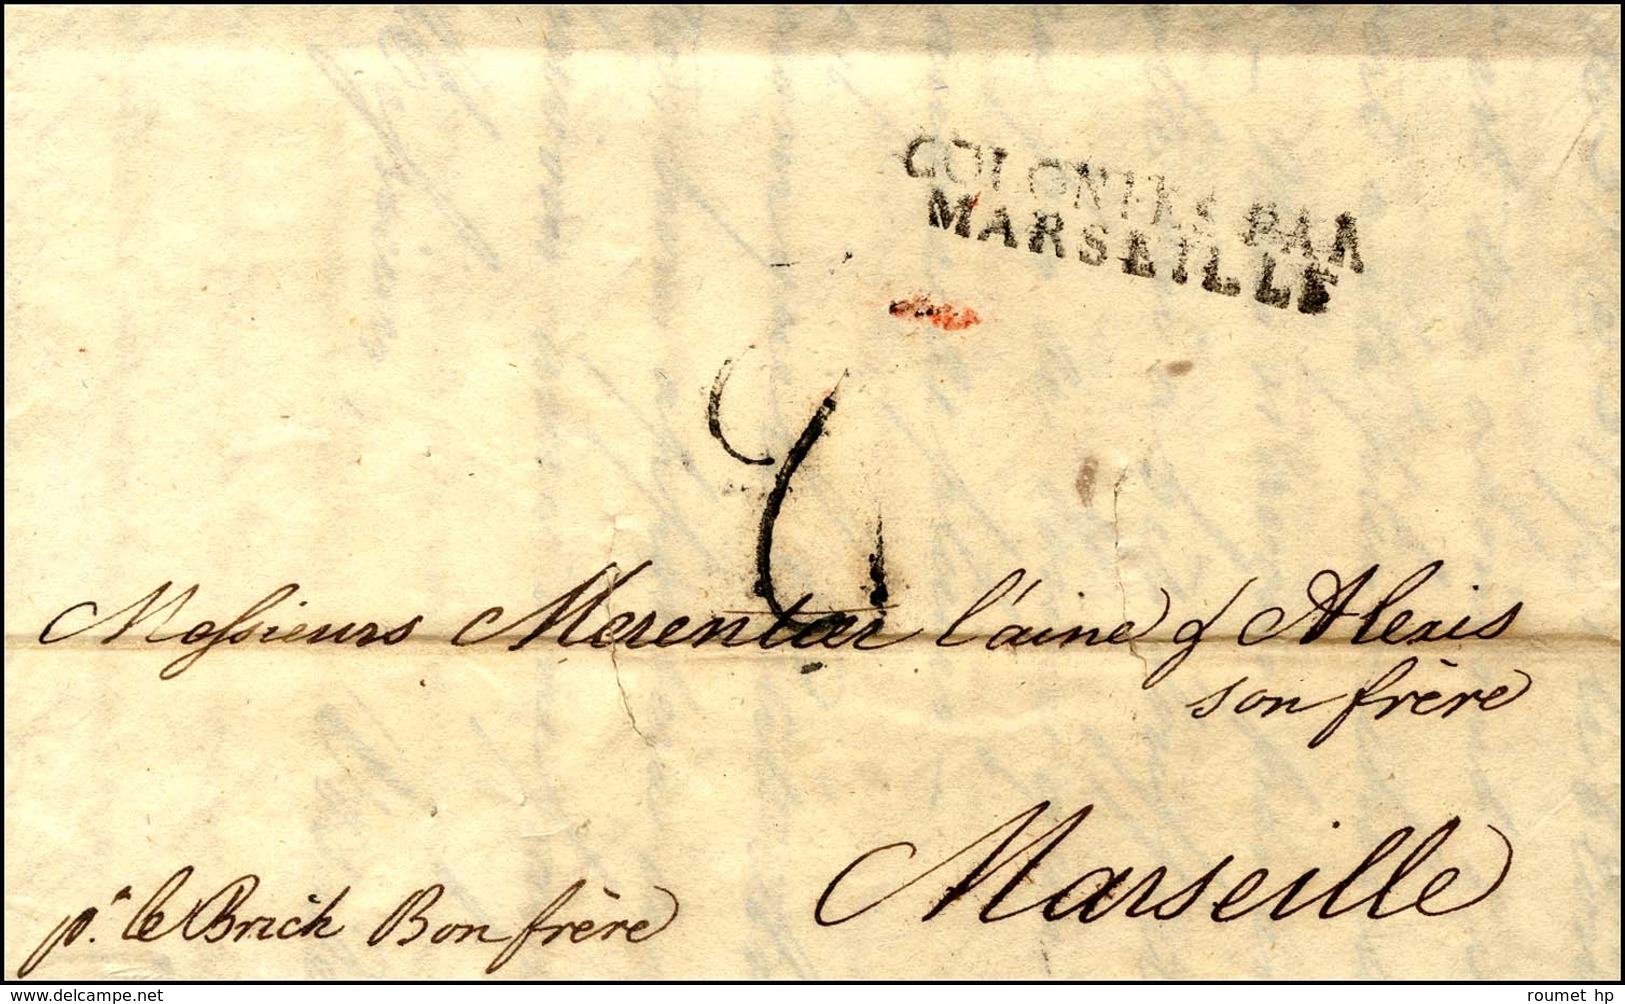 COLONIES PAR
MARSEILLE
2
Messieurs Merentier l'ainé & Alexis
son frère
Marseille
pr. le Brick Bon frère
www.delcampe.net
roumet hp